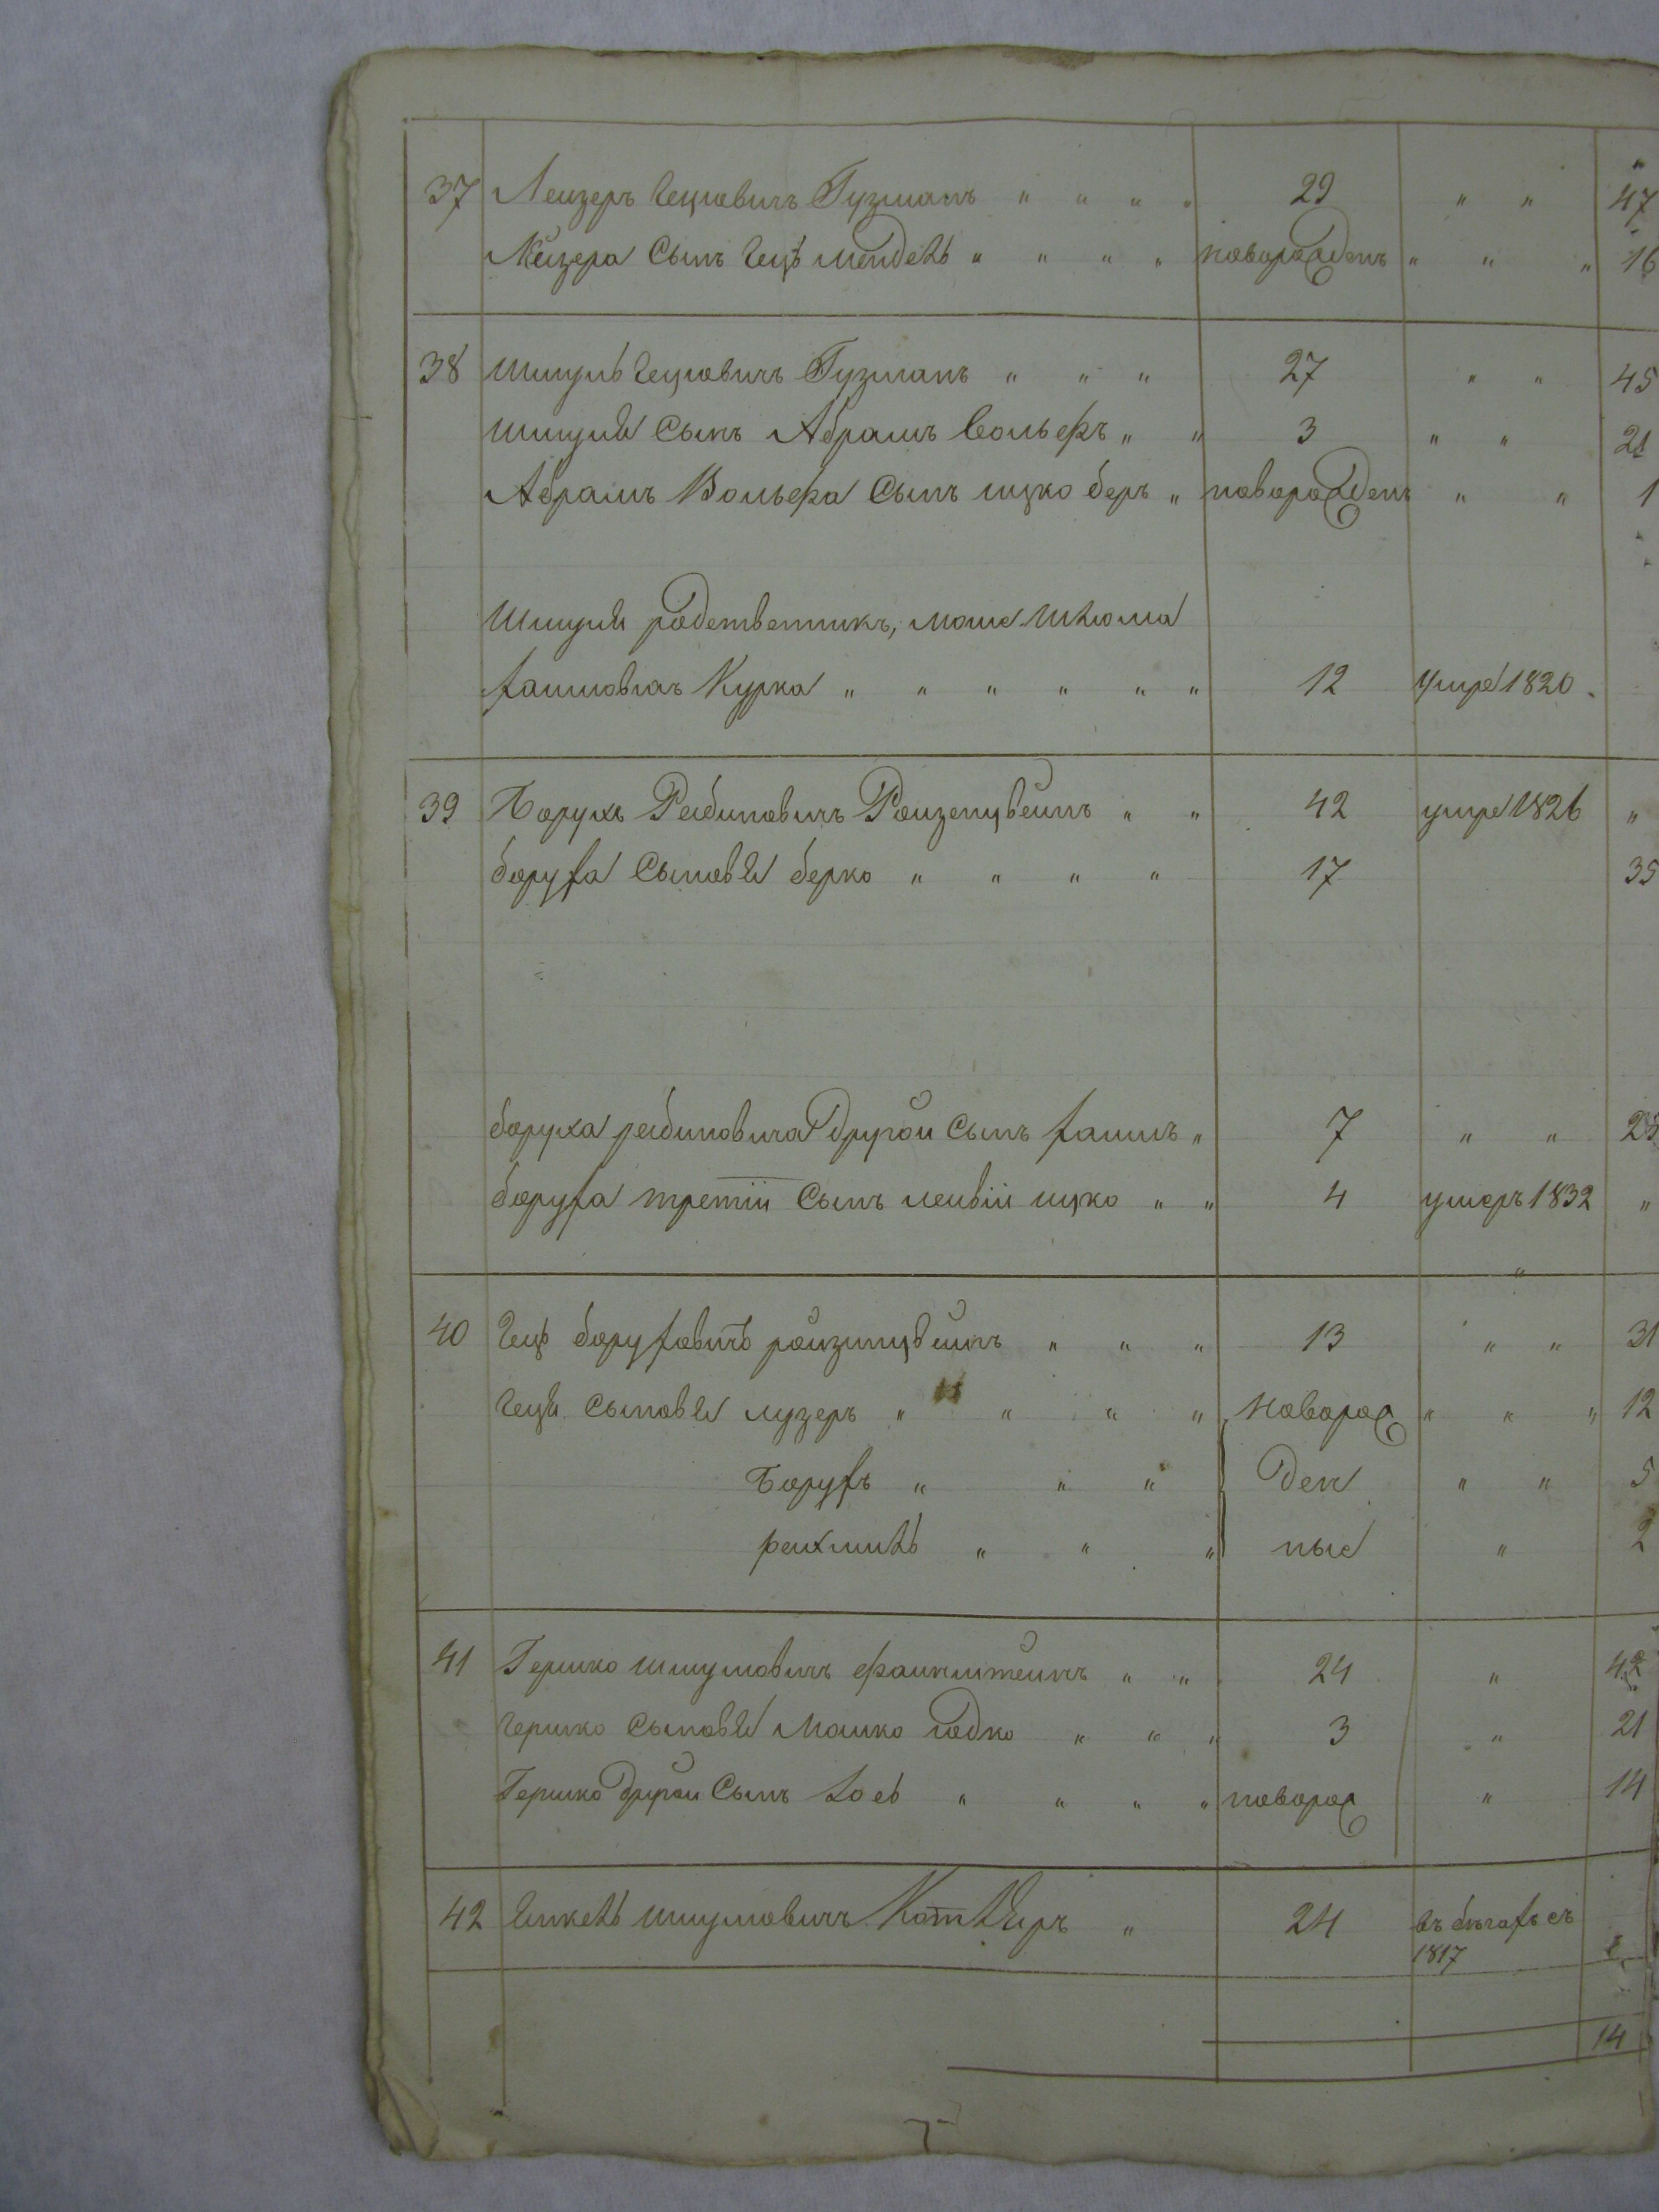 37 Лейзеръ Гецiовичъ Гузманъ " " " " 29 " " 47
Лейзера Сынъ Гецъ Мендель " " " " новорожденъ " " " 16
38 Шмуль Гецiовичъ Гузманъ " " " 27 " " 45
Шмуля Сынъ Абрамъ Вольфъ " " 3 " " 21
Абрамъ Вольфа Сынъ ицко беръ " новорожденъ " " 1
Шмуля родственникъ, мошешлюма
Хаимовичъ Курка " " " " " " 12 Умре 1820
39 Борухъ Рабиновичъ Роизенцвейгъ " " 42 умре 1826 "
боруха Сыновья берко " " " " 17 35
боруха рабиновича Другой Сынъ хаимъ " 7 " " 25
боруха третiй Сынъ ицко " " 4 умеръ 1832 "
"
40 Гецъ боруховичъ " " " 13 " " 31
Геця Сыновья лузеръ " " " " новорож " " " 12
Борухъ " " " ден " " 5
рахмиль " " " ные " 2
41 Гершко шмуловичъ файнштейнъ " " 24 " 42
Гершко Сыновья Мошко iодко " " " 3 " 21
Гершко Другой Сынъ Лоеб " " " " новорож " 14
42 шмуловичъ Котляръ " 24 въ бѣгахъ съ
1817
14